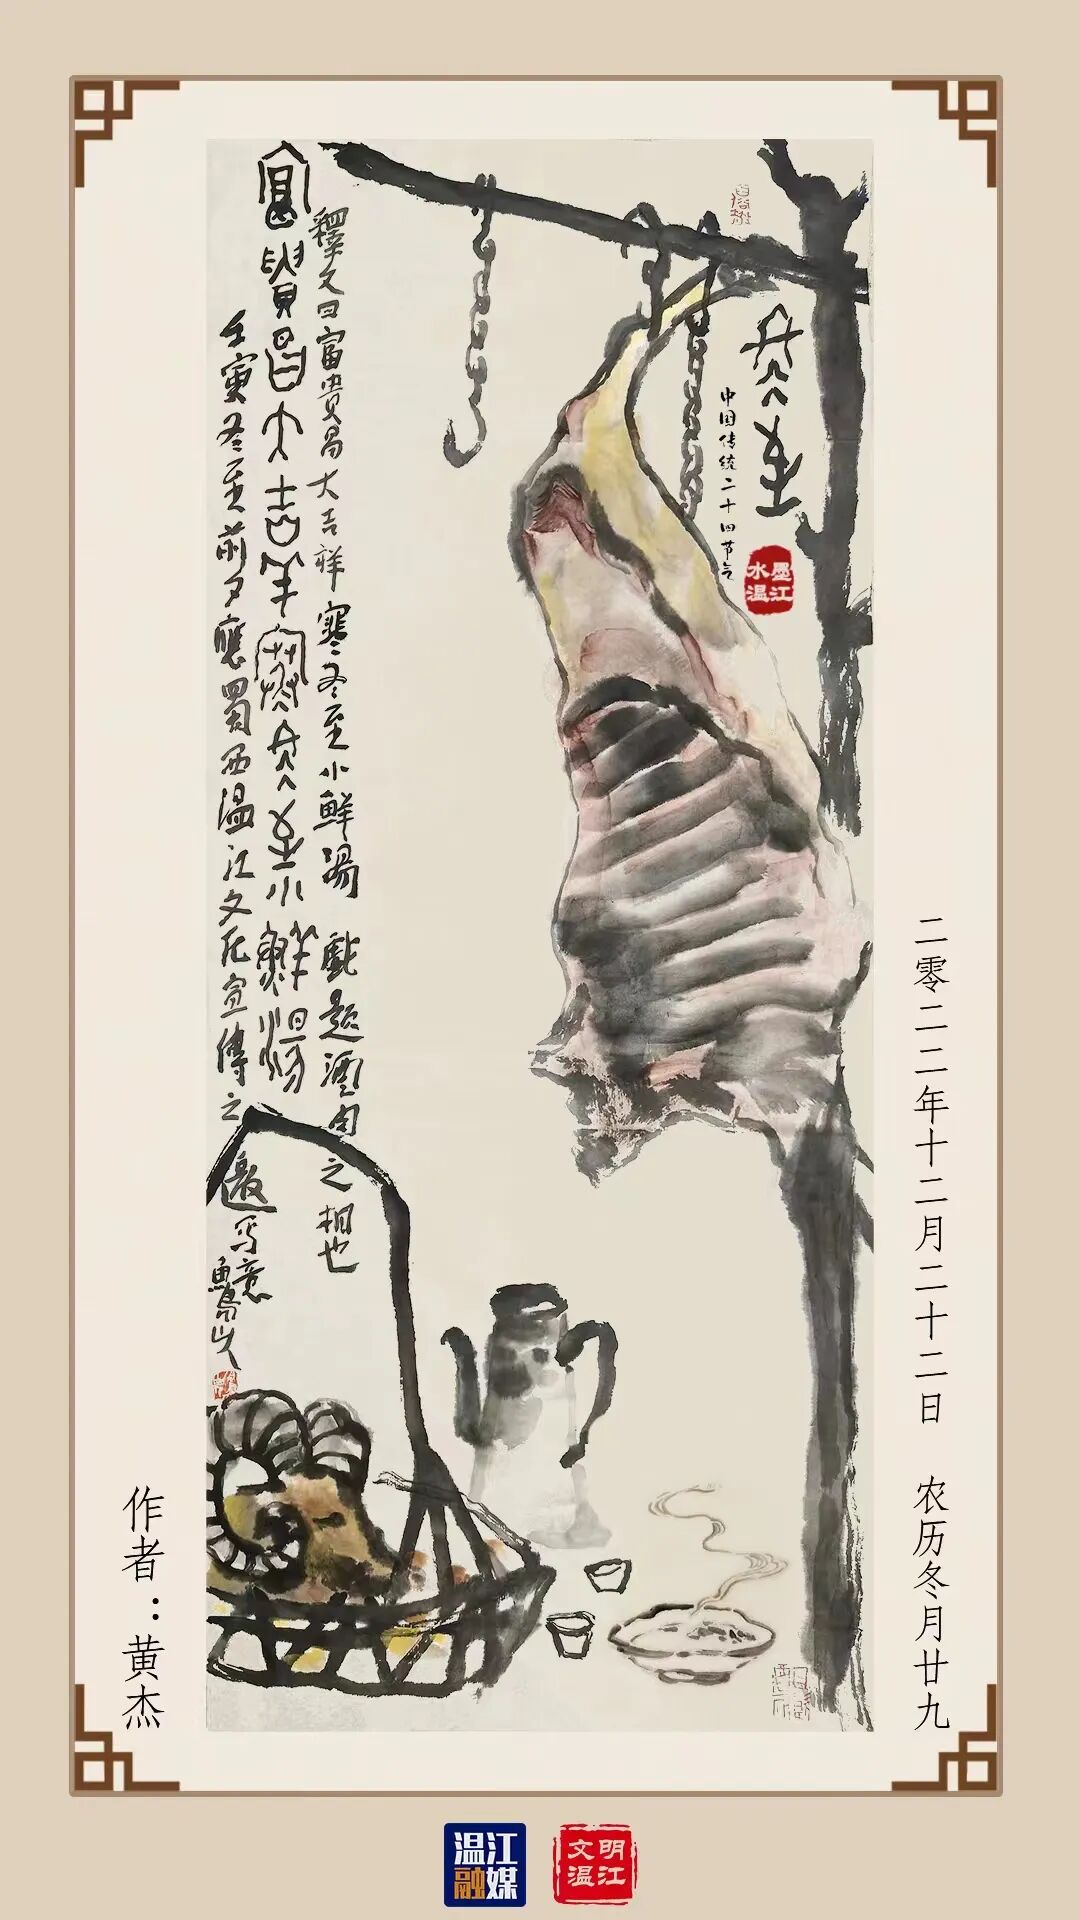 冬至
中国传统二十四节气
水墨温江
釋文曰富貴昌大吉祥寒冬至小鮮湯 戲題酒肉之相也
富貴昌大吉羊寒冬至小鮮湯
壬寅冬至前夕應蜀西温江文化宣傳之邀写意
二零二二年十二月二十二日 农历冬月廿九
作者：黄杰
温江融媒
文明温江